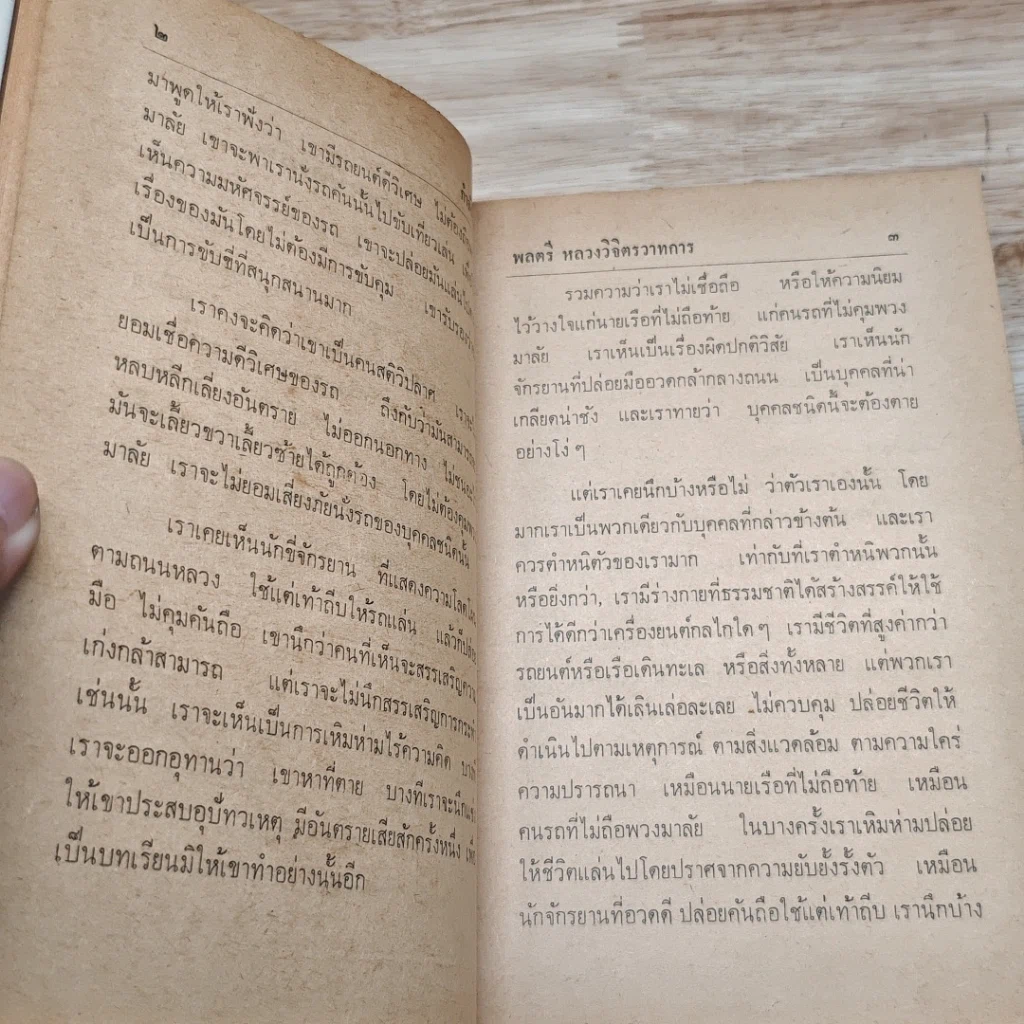 ๒
มาพูดให้เราฟังว่า เขามีรถยนต์ดีวิเศษ ไม่ต้อง
มาลัย เขาจะพาเรานั่งรถคันนั้นไปขับเที่ยวเล่น
เห็นความมหัศจรรย์ของรถ เขาจะปล่อยมันแล่น
เรื่องของมันโดยไม่ต้องมีการขับคุม เขารับรอง
เป็นการขับขี่ที่สนุกสนานมาก
เราคงจะคิดว่าเขาเป็นคนสติวิปลาศ เรา
ยอมเชื่อความดีวิเศษของรถ ถึงกับว่ามันสามารถ
หลบหลีกเลี่ยงอันตราย ไม่ออกนอกทาง ไม่ชน
มันจะเลี้ยวขวาเลี้ยวซ้ายได้ถูกต้อง โดยไม่ต้อง
มาลัย เราจะไม่ยอมเสี่ยงภัยนั่งรถของบุคคลชนิดนั้น
เราเคยเห็นนักขี่จักรยาน ที่แสดงความ
ตามถนนหลวง ใช้แต่เท้าถีบให้รถแล่น แล้วก็ปล่อย
มือ ไม่คุมคันถือ เขานึกว่าคนที่เห็นจะสรรเสริญความ
เก่งกล้าสามารถ แต่เราจะไม่นึกสรรเสริญการกระทำ
เช่นนั้น เราจะเห็นเป็นการเหิมห่ามไร้ความคิด บางที
เราจะออกอุทานว่า เขาหาที่ตาย บางทีเราจะนึก
ให้เขาประสบอุบัทวเหตุ มีอันตรายเสียสักครั้งหนึ่ง
เป็นบทเรียนมิให้เขาทำอย่างนั้นอีก
พลตรี หลวงวิจิตรวาทการ ๓
รวมความว่าเราไม่เชื่อถือ หรือให้ความนิยม
ไว้วางใจแก่นายเรือที่ไม่ถือท้าย แก่คนรถที่ไม่คุมพวง
มาลัย เราเห็นเป็นเรื่องผิดปกติวิสัย เราเห็นนัก
จักรยานที่ปล่อยมืออวดกล้ากลางถนน เป็นบุคคลที่น่า
เกลียดน่าชัง และเราทายว่า บุคคลชนิดนี้จะต้องตาย
อย่างโง่ ๆ
แต่เราเคยนึกบ้างหรือไม่ ว่าตัวเราเองนั้น โดย
มากเราเป็นพวกเดียวกับบุคคลที่กล่าวข้างต้น และเรา
ควรตำหนิตัวของเรามาก เท่ากับที่เราตำหนิพวกนั้น
หรือยิ่งกว่า, เรามีร่างกายที่ธรรมชาติได้สร้างสรรค์ให้ใช้
การได้ดีกว่าเครื่องยนต์กลไกใด ๆ เรามีชีวิตที่สูงค่ากว่า
รถยนต์หรือเรือเดินทะเล หรือสิ่งทั้งหลาย แต่พวกเรา
เป็นอันมากได้เลินเล่อละเลย ไม่ควบคุม ปล่อยชีวิตให้
ดำเนินไปตามเหตุการณ์ ตามสิ่งแวดล้อม ตามความใคร่
ความปรารถนา เหมือนนายเรือที่ไม่ถือท้าย เหมือน
คนรถที่ไม่ถือพวงมาลัย ในบางครั้งเราเหิมห่ามปล่อย
ให้ชีวิตแล่นไปโดยปราศจากความยับยั้งรั้งตัว เหมือน
นักจักรยานที่อวดดี ปล่อยคันถือใช้แต่เท้าถีบ เรานึกบ้าง